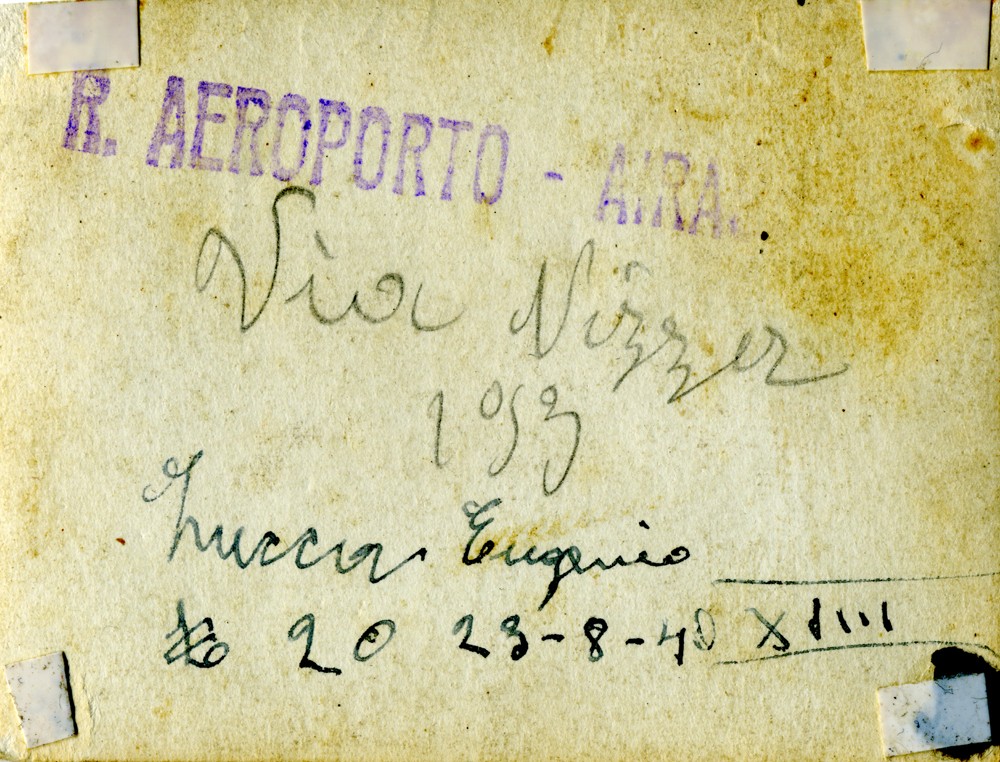 R. AEROPORTO - AIRA.
Via Nizza
193
Zucca Eugenio
20 23-8-40 XVIII